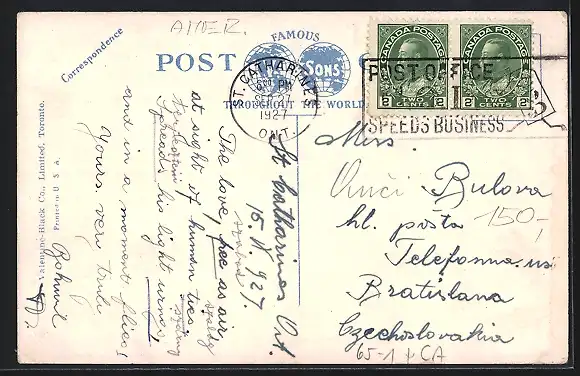 AMER.
Correspondence
POST
FAMOUS
SONS
THROUGHOUT THE WORLD
ST. CATHARINES
PM
27
1927
ONT.
CANADA POSTAGE
2 TWO CENTS 2
CANADA POSTAGE
2 TWO CENTS 2
POST OFFICE
SPEEDS BUSINESS
Valentine-Black Co., Limited, Toronto.
Printed in U S A
St Catharines Ont.
1927.
The love, free as air
at sight of human ties,
Spreads his light wings,
and in a moment flies!
Yours, very truly
Miss
Bulova
150,-
hl. pošta
Bratislava
Czechoslovakia
65-1 + CA